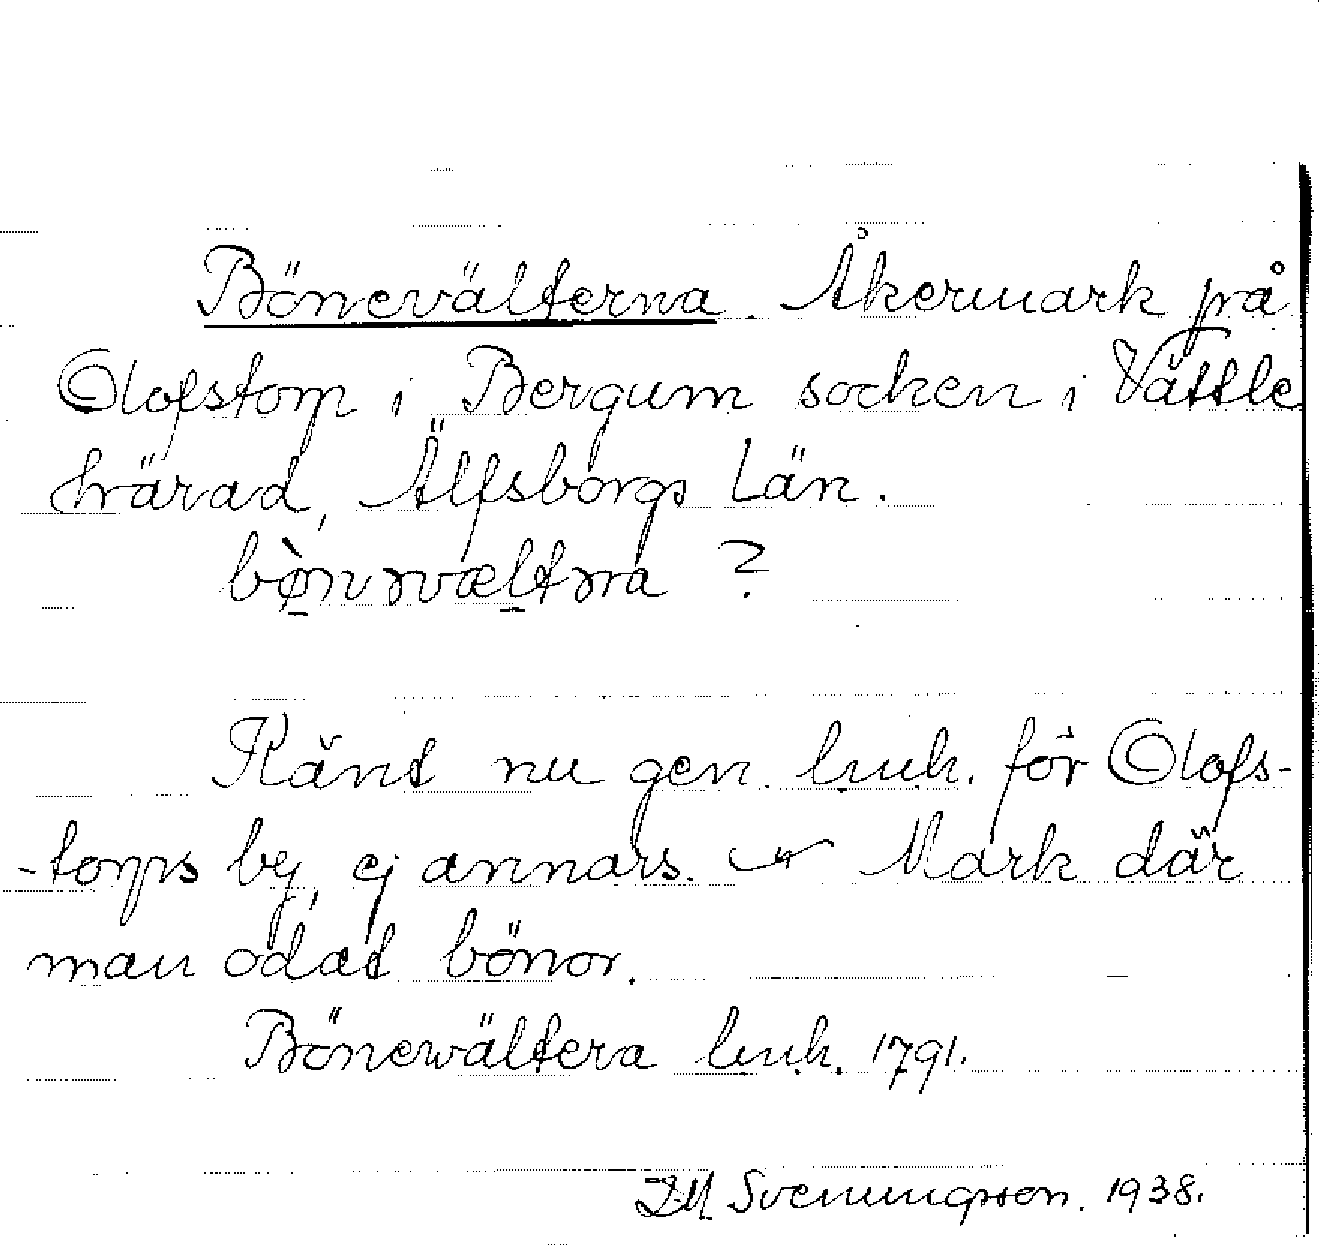 Bönevälterna. Åkermark på
Olofstorp i Bergum socken i Vättle
härad, Älfsborgs Län.
?
Känt nu gen. lmh. för Olofs-
-torps by, ej annars. Mark där
man odat bönor.
Bönewältera lmh. 1791.
Svenningsson. 1938.